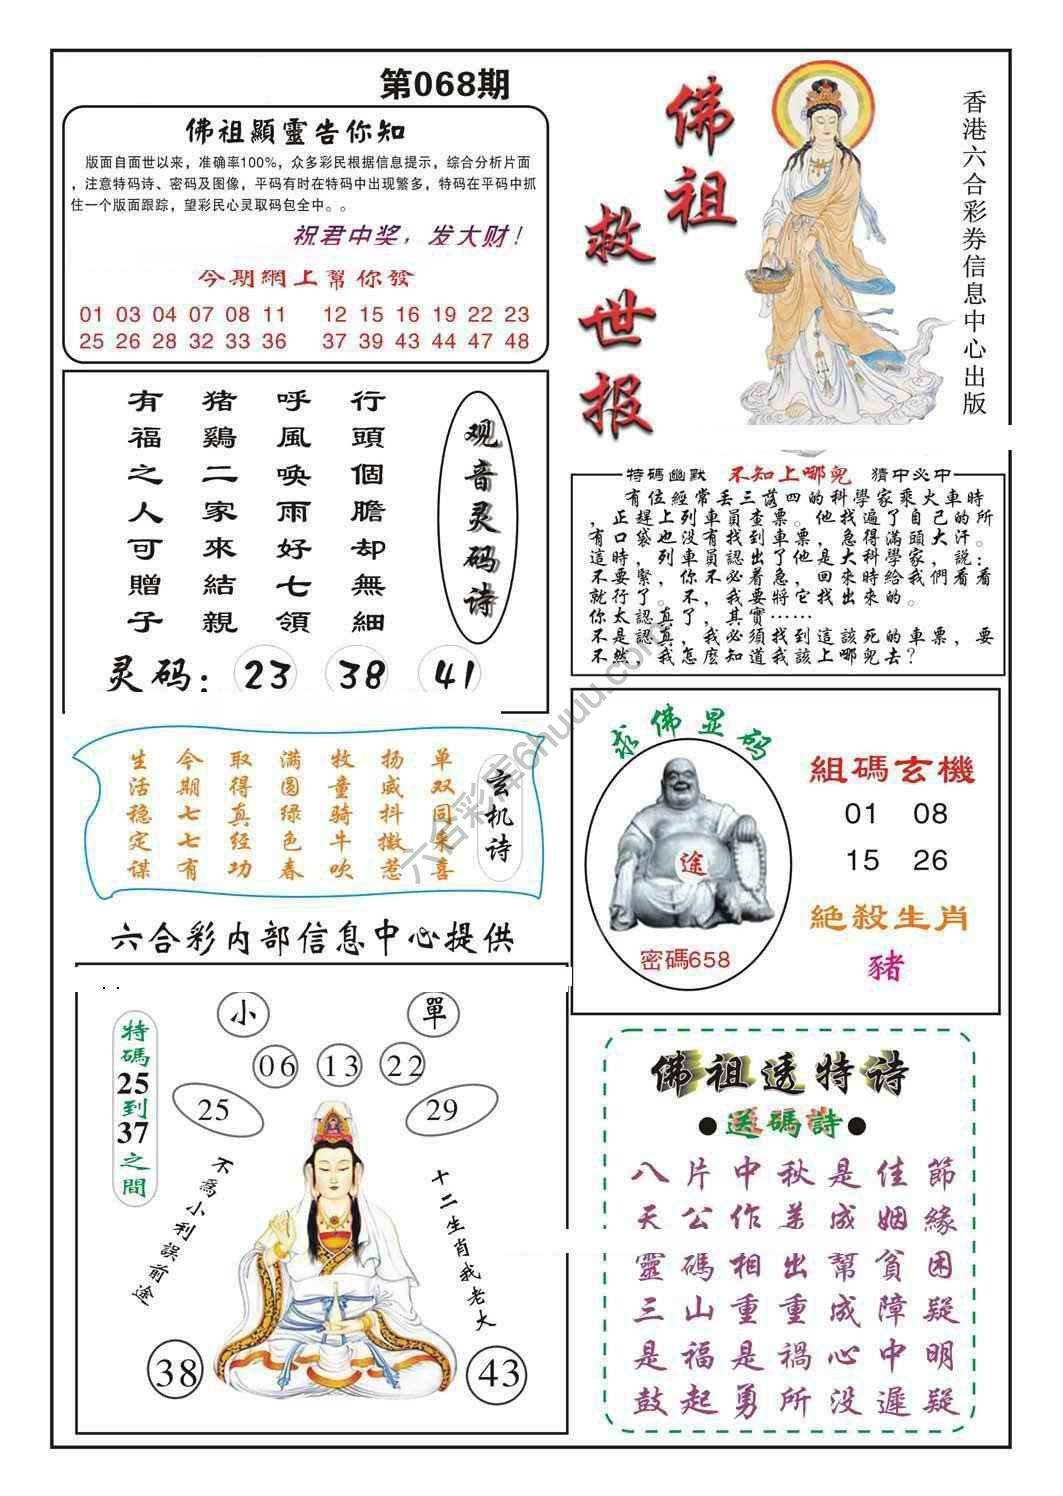 第068期
佛祖顯靈告你知
版面自面世以来，准确率100%，众多彩民根据信息提示，综合分析片面
，注意特码诗、密码及图像，平码有时在特码中出现繁多，特码在平码中抓
住一个版面跟踪，望彩民心灵取码包全中。。
祝君中奖，发大财！
今期網上幫你發
01 03 04 07 08 11 12 15 16 19 22 23
25 26 28 32 33 36 37 39 43 44 47 48
佛祖
救世报
香港六合彩券信息中心出版
观音灵码诗
行頭個膽却無細
呼風喚雨好七領
猪鷄二家來結親
有福之人可贈子
灵码：23 38 41
特碼幽默 不知上哪兒 猜中必中
有位經常丢三落四的科學家乘火車時
，正趕上列車員查票。他找遍了自己的所
有口袋也没有找到車票，急得滿頭大汗。
這時，列車員認出了他是大科學家，説：
不要緊，你不必着急，回來時給我們看看
就行了。不，我要將它找出來的。
你太認真了，其實……
不是認真，我必須找到這該死的車票，要
不然，我怎麽知道我該上哪兒去？
玄机诗
单双同来喜
扬威抖擞惹
牧童骑牛吹
满圆绿色春
取得真经功
今期七七有
生活稳定谋
六合彩内部信息中心提供
求佛显码
途
密碼658
組碼玄機
01 08
15 26
絶殺生肖
豬
小 單
特碼25到37之間
06 13 22
25 29
不爲小利誤前途
十二生肖我老大
38 43
佛祖透特诗
●送碼詩●
八片中秋是佳節
天公作美成姻緣
靈碼相出幫貧困
三山重重成障疑
是福是禍心中明
鼓起勇所没遲疑
六合彩库6huuu.com